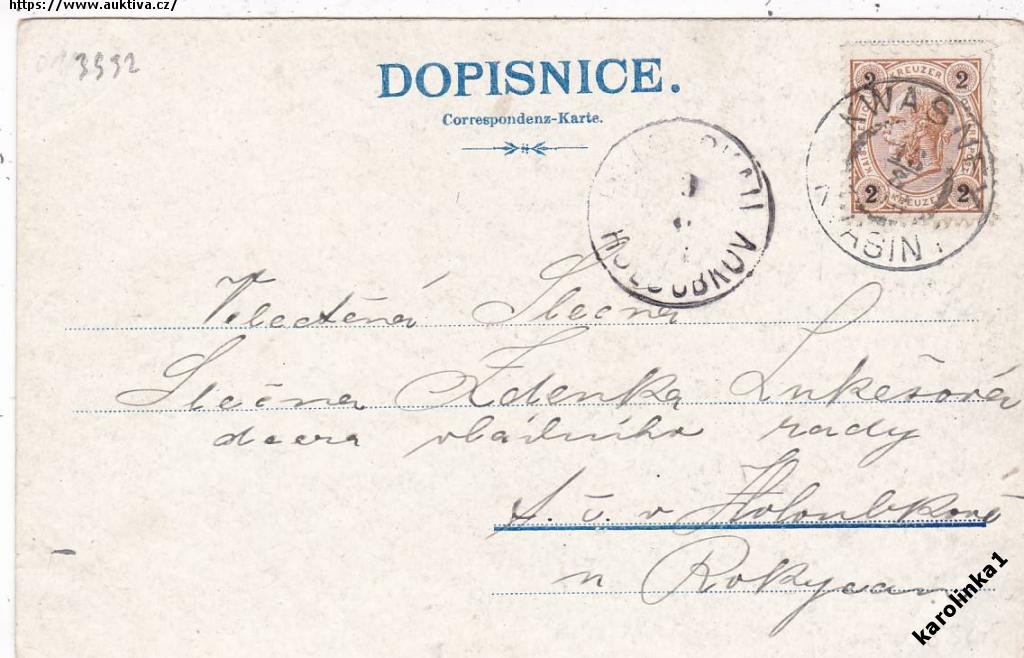 https://www.auktiva.cz/
3992
DOPISNICE.
Correspondenz-Karte.
2 KREUZER 2
2 KREUZER 2
KWASIN
HOLOUBKOV
Veloctěná Slečna
Slečna Zdenka Lukešová
dcera vládního rady
t. č. v Holoubkově
u Rokycan
karolinka1